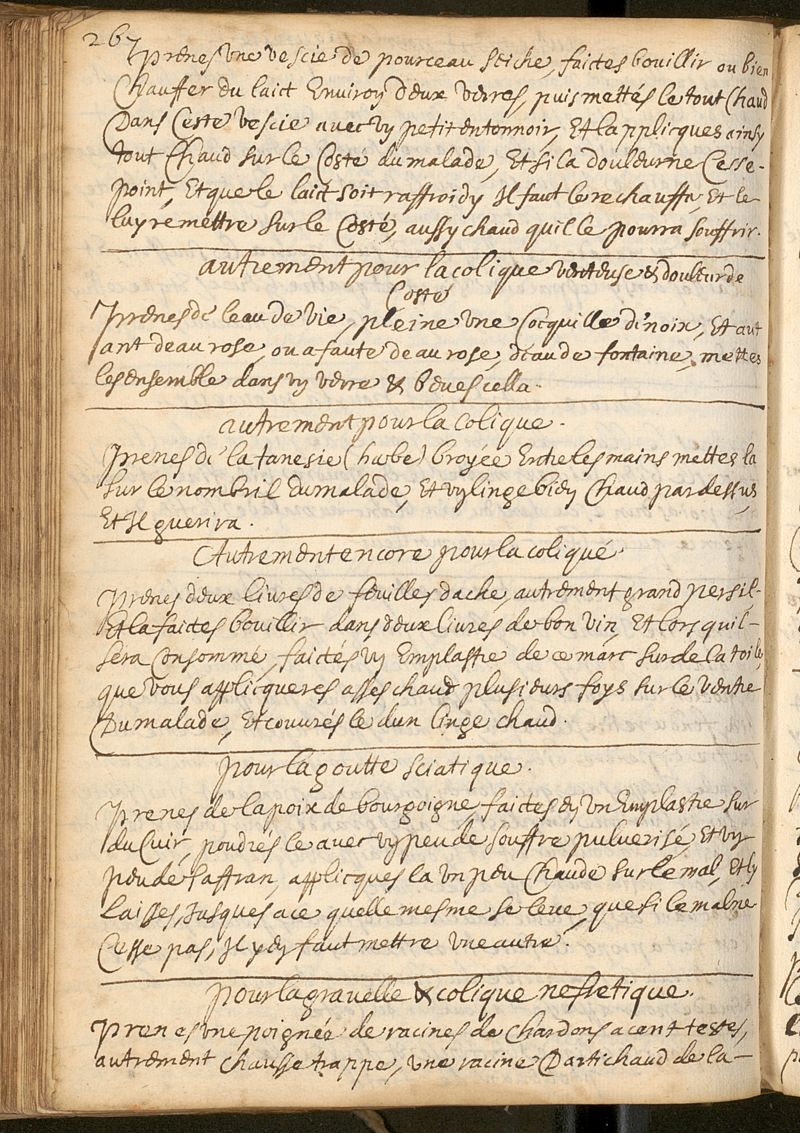 267
Prenes vne vescie de pourceau seiche, faictes bouillir ou bien
Chauffer du laict Enuiron deux verres, puis mettés le tout Chaud
Dans Ceste vescie auec vn petit entonnoir, Et lapplicques ainsy
tout Chaud sur le Costé du malade, Et si la douleur ne Cesse
point, Et que le laict soit raffroidy Il faut le rechauffer, Et le
luy remettre sur le Costé, aussy chaud quil le pourra souffrir.
autrement pour la colique venteuse & douleur de
Costé
Prenes de leau de vie, pleine vne Cocquille de noix, Et aut
ant deau rose, ou a faute deau rose, deau de fontaine, mettes
les ensemble dans vn verre & beues cella.
autrement pour la Colique.
Prenes de la tanesie (herbe) broyée Entre les mains mettes la
sur le nombril du malade, Et vn linge bien Chaud par dessus
Et Il guerira.
Autrement encore pour la colique.
Prenes deux liures de feuilles dache, autrement grand persil
Et la faictes bouillir dans deux liures de bon vin, Et lors quil
sera Consommé, faictes vn Emplastre de ce marc sur de la toile,
que vous applicqueres asses chaud plusieurs foys sur le ventre
Du malade, Et couurés le dun linge chaud.
pour la goutte sciatique.
Prenes de la poix de bourgoigne faictes en vn Emplastre sur
du Cuir, poudrés le auec vn peu de souffre puluerisé, Et vn
peu de saffran, applicques la vn peu Chaude sur le mal, Et ly
laisses, Jusques a ce quelle mesme se leue, que si le mal ne
Cesse pas, Il y en faut mettre vne autre.
pour la grauelle & colique nefretique.
Prenes vne poignée de racines de Chardons a cent testes,
autrement chaussetrappe, vne racine Dartichaud de la-